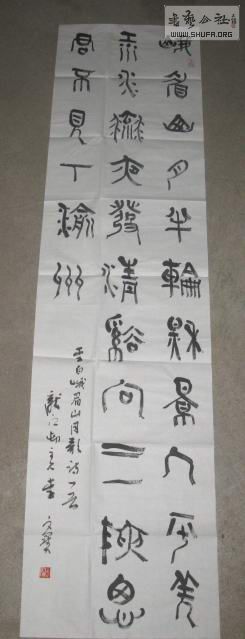 書藝公社
WWW.SHUFA.ORG
峨眉山月半輪秋景入平羌
江水流夜發清谿向三峽思
君不見下渝州
李白峨眉山月歌詩一首